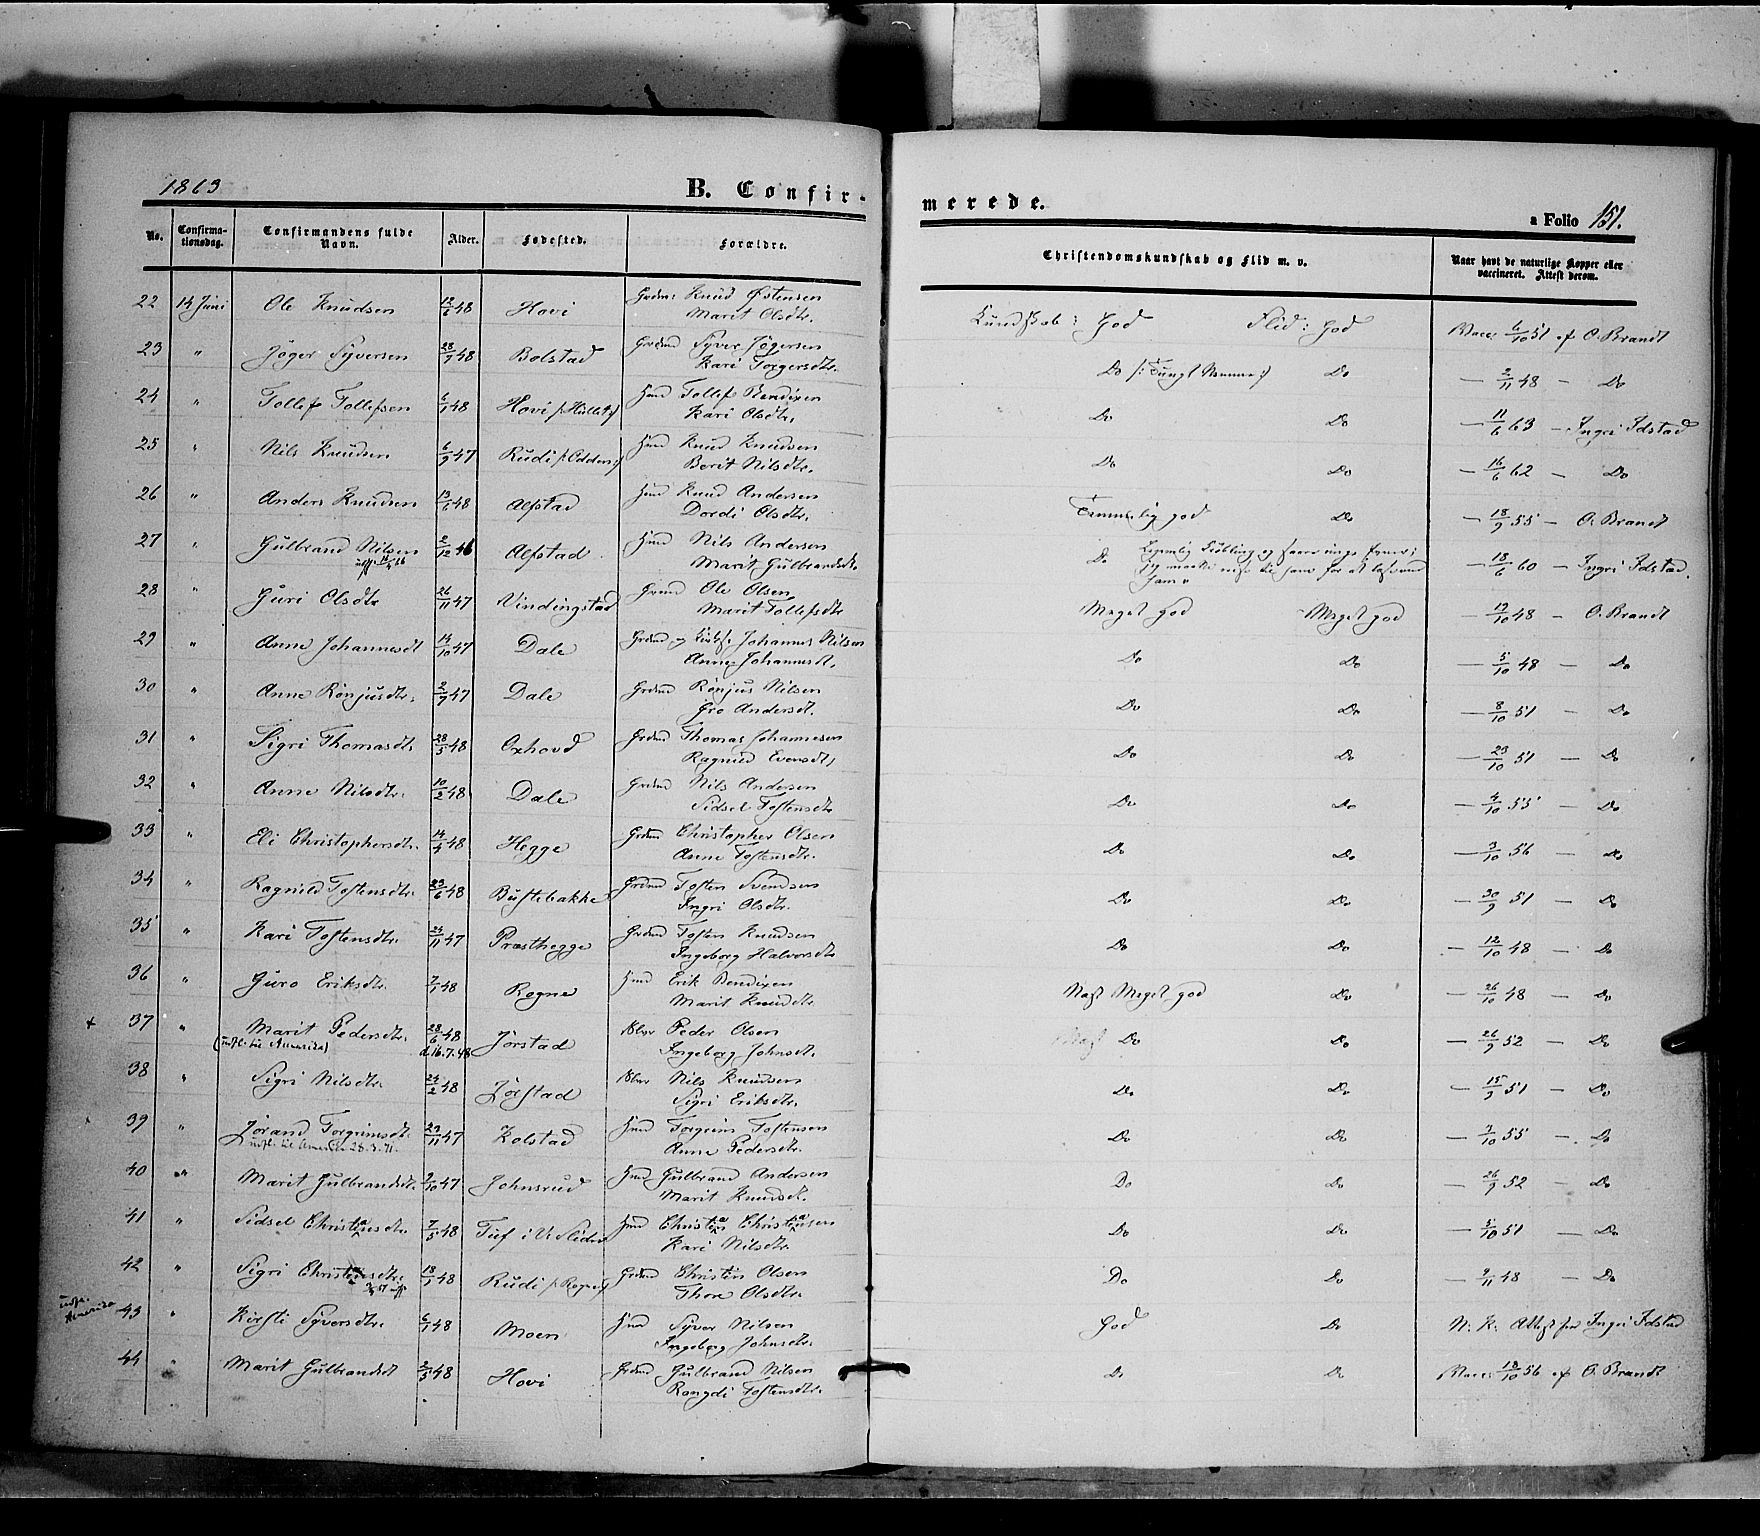 1863 B. Confirmerede. a Folio 151.
No. Confirmationsdag. Confirmandens fulde Navn. Alder. Fødested. Forældre. Christendomskundskab og Flid m. v. Naar havt de naturlige Kopper eller vaccineret. Attest derom.
22 14 Juni Ole Knudsen 12/6 48 Hovi Grdmd Knud Østensen Marit Olsdtr. Kundskab: God Flid: God Vacc: 6/10 51 af O. Brandt
23 " Jøger Syversen 28/9 48 Bolstad Grdmd Syver Jøgersen Kari Torgersdtr. Do /: Tungt Nemme :/ Do — 2/11 48 — Do
24 " Tollef Tollefsen 6/1 48 Hovi Hmd Tollef Bendixen Kari Olsdtr. Do Do — 11/6 63 — Ingri Idstad
25 " Nils Knudsen 6/9 47 Rudi /: Odden :/ Hmd Knud Knudsen Berit Nilsdtr. Do Do — 16/6 62 — Do
26 " Anders Knudsen 13/6 48 Alfstad Hmd Knud Andersen Dordi Olsdtr. Temmelig god Do — 18/9 55 — O. Brandt
27 " Gulbrand Nilsen 2/12 46 Alfstad Hmd Nils Andersen Marit Gulbrandsdtr. Do — 18/6 60 — Ingri Idstad.
28 " Guri Olsdtr 26/11 47 Vindingstad Grdmd Ole Olsen Marit Tollefsdtr Meget god Meget god — 19/10 48 — O. Brandt
29 " Anne Johannesdt 14/10 47 Dale Grdmd og Johannes Nilsen Anne Johannesdt. Do Do — 5/10 48 — Do
30 " Anne Rønjusdtr. 2/9 47 Dale Grdmd Rønjus Nilsen Gro Andersdt. Do Do — 8/10 51 — Do
31 " Sigri Thomasdtr. 28/5 48 Oxhovd Grdmd Thomas Johannesen Ragnild Evensdt. Do Do — 23/10 51 — Do
32 " Anne Nilsdtr. 10/2 48 Dale Grdmd Nils Andersen Sidsel Tostensdtr Do Do — 4/10 55 — Do
33 " Eli Christophersdtr. 14/4 48 Hegge Grdmd Christopher Olsen Anne Tostensdtr. Do Do — 3/10 56 — Do
34 " Ragnild Tostensdtr. 23/6 48 Bustebakke Grdmd Tosten Svendsen Ingri Olsdtr. Do Do — 30/9 51 — Do
35 " Kari Tostensdtr. 24/11 47 Præsthegge Grdmd Tosten Knudsen Ingeborg Halvorsdtr Do Do — 12/10 48 — Do
36 " Guro Eriksdtr. 7/1 48 Rogne Hmd Erik Bendixen Marit Knudsdtr. Næst Meget god Do — 26/10 48 — Do
+ 37 " Marit Pedersdtr. (udfl. til Amerika) 28/6 48 d. 16.7.48 Jorstad Peder Olsen Ingeborg Johnsdt. Do Do — 26/9 52 — Do
38 " Sigri Nilsdtr. 24/2 48 Jorstad Nils Knudsen Sigri Eriksdtr. Do Do — 15/9 51 — Do
39 " Jørand Torgrimsdt. udfl. til Amerika 28.3.71. 29/11 47 Kolstad Hmd Torgrim Tostensen Anne Pedersdtr. Do Do — 7/10 55 — Do
40 " Marit Gulbrandsdtr. 9/10 47 Johnsrud Hmd Gulbrand Andersen Marit Knudsdt. Do Do — 26/9 52 — Do
41 " Sidsel Christiansdtr. 7/5 48 Tuf i V. Slidre Hmd Christian Christiansen Kari Nilsdtr. Do Do — 5/10 51 — Do
42 " Sigri Christensdtr. 18/1 48 Rudi Grdmd Christen Olsen Thore Olsdtr. Do Do — 9/11 48 — Do
udfl. Amerika 43 " Kirsti Syversdtr. 6/1 48 Moen Hmd Syver Nilsen Ingeborg Johnsdtr. God Do N. K. Attest fra Ingri Idstad
44 " Marit Gulbrandsdt 2/5 48 Hovi Grdmd Gulbrand Nilsen Rangdi Tostensdtr. Do Do Vacc: 18/10 56 af O. Brandt